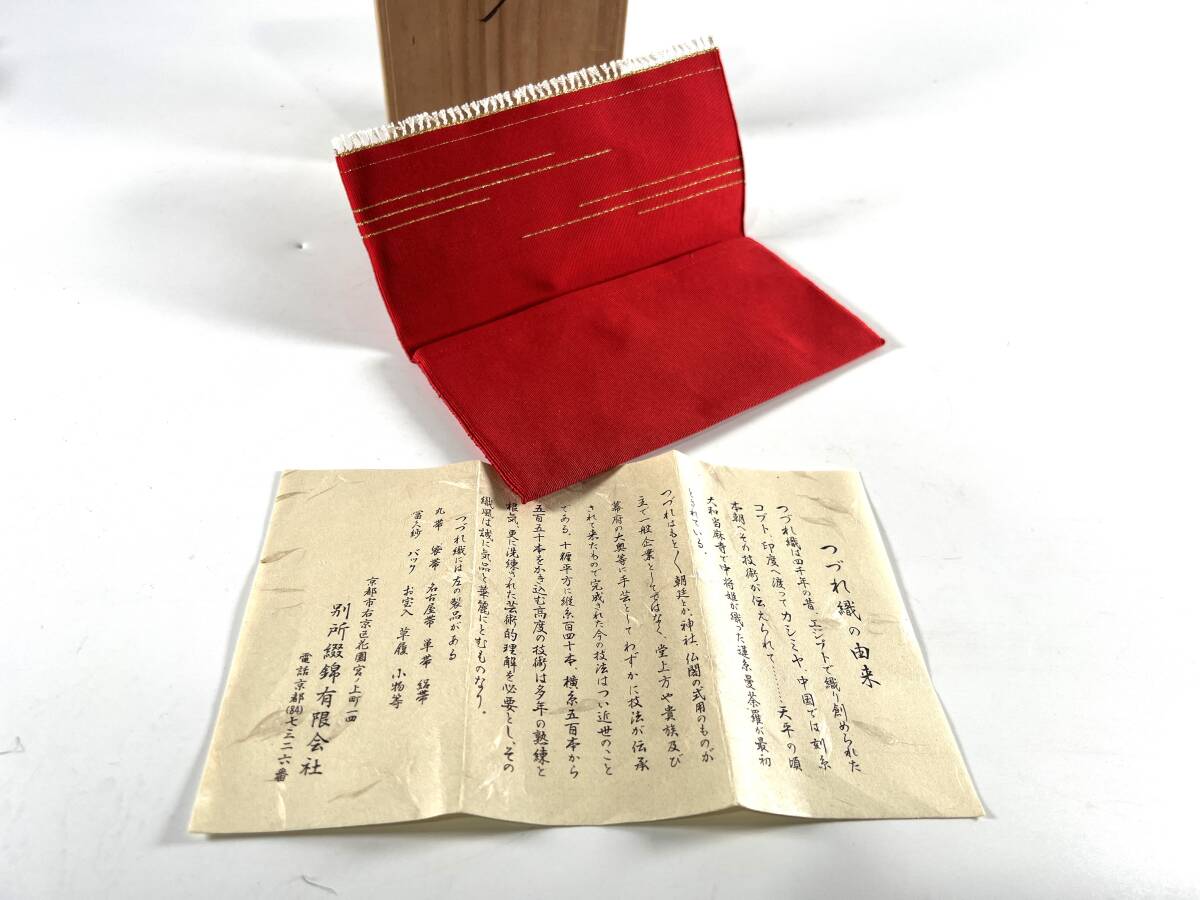 つづれ織の由来
つづれ織は四千年の昔、エジプトで織り創められた
コプト、印度へ渡ってカシミヤ、中国では刻糸
本朝へその技術が伝えられて……天平の頃
大和当麻寺で中将姫が織った蓮糸曼荼羅が最初
とされている。
つづれはもと〱朝廷とか神社、仏閣の式用のものが
主で一般企業としてではなく、堂上方や貴族及び
幕府の大奥等に手芸としてわずかに技法が伝承
されて来たもので完成された今の技法はつい近世のこと
である。十糎平方に縦糸百四十本、横糸五百本から
五百五十本をかき込む高度の技術は多年の熟練と
根気、更に洗練された芸術的理解を必要とし、その
織風は誠に気品と華麗にとむものなり。
つづれ織には左の製品がある
丸帯 名古屋帯 単帯
バック お宝入 草履 小物等
京都市右京区花園宮ノ上町一四
別所綴錦有限会社
電話京都(84)七三二六番